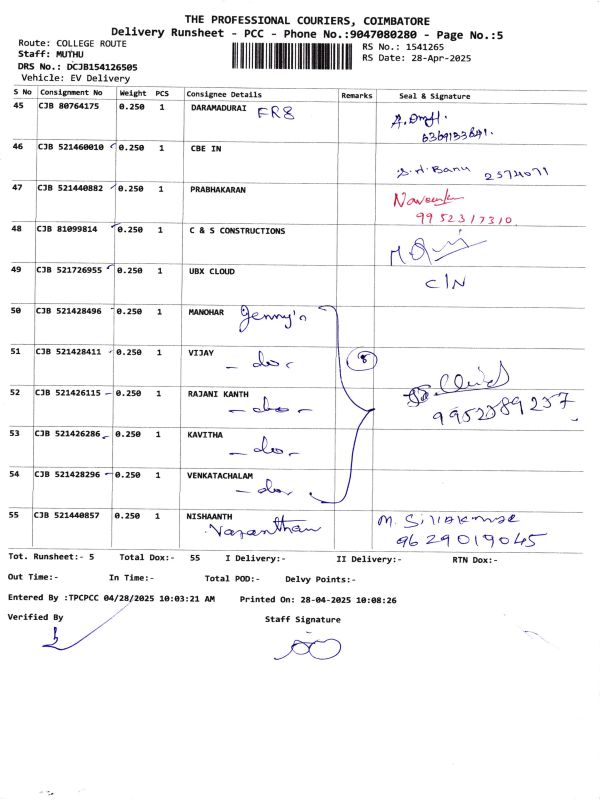 THE PROFESSIONAL COURIERS, COIMBATORE
Delivery Runsheet - PCC - Phone No.:9047080280 - Page No.:5
Route: COLLEGE ROUTE RS No.: 1541265
Staff: MUTHU RS Date: 28-Apr-2025
DRS No.: DCJB154126505
Vehicle: EV Delivery
S No Consignment No Weight PCS Consignee Details Remarks Seal & Signature
45 CJB 80764175 0.250 1 DARAMADURAI FR8
46 CJB 521460010 0.250 1 CBE IN S.H.Banu 2574071
47 CJB 521440882 0.250 1 PRABHAKARAN
9952317310
48 CJB 81099814 0.250 1 C & S CONSTRUCTIONS
49 CJB 521726955 0.250 1 UBX CLOUD C/N
50 CJB 521428496 0.250 1 MANOHAR Jenny's
51 CJB 521428411 0.250 1 VIJAY - do - 8
52 CJB 521426115 0.250 1 RAJANI KANTH - do -
9952589257
53 CJB 521426286 0.250 1 KAVITHA - do -
54 CJB 521428296 0.250 1 VENKATACHALAM - do -
55 CJB 521440857 0.250 1 NISHAANTH M.
Vasanthan 9629019045
Tot. Runsheet:- 5 Total Dox:- 55 I Delivery:- II Delivery:- RTN Dox:-
Out Time:- In Time:- Total POD:- Delvy Points:-
Entered By :TPCPCC 04/28/2025 10:03:21 AM Printed On: 28-04-2025 10:08:26
Verified By Staff Signature